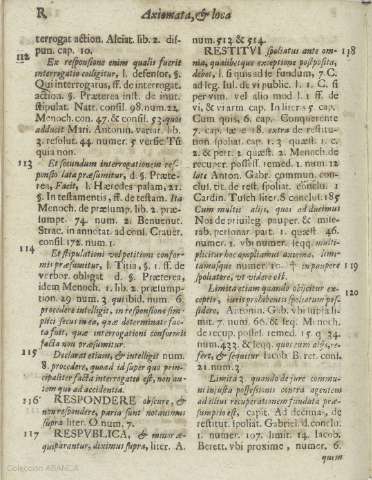 R. Axiomata, & loca
terrogat action. Alciat. lib. 2. dis-
pun. cap. 10.
112 Ex responsione enim qualis fuerit
interrogatio colligitur, l. defensor, §.
Qui interrogatus, ff. de interrogat.
action. §. Præterea inst. de inut.
stipulat. Natt. consil. 98. num. 22
Menoch. con. 47. & consil. 53. quos
adducit Mari. Antonin. variar. lib.
3. resolut. 44. numer. 5 versic Tu
quia non.
113 Et secundum interrogationem res-
ponsio lata præsumitur, d. §. Præte-
rea, Facit, l. Hæredes palam, 21.
§. In testamentis, ff. de testam. Ita
Menoch. de præsump. lib. 2. præ-
sumpt. 74. num 1. Benuenut.
Strac. in annotat. ad consil. Crauet.
consil 172. num. 1.
114 Et stipulatio vel petitioni confor-
mis præsumitur, l. Titia, §. 1. ff. de
verbor. obligat d. §. Præterea,
idem Menoch. 1. lib. 2. præsump-
tion. 29. num. 3. quibid. num. 6.
procedere intelligit, in responsione sim-
plici secus in ea, quæ determinate fac-
ta fuit, quæ interrogationi conformis
facta non præsumitur.
115 Declarat etiam, & intelligit num.
8. procedere, quoad id super quo prin-
cipaliter facta interrogatio est, non au-
tem quo ad accidentia.
116 RESPONDERE obscure, &
non respondere, paria sunt notauimus
supra liter. O. num. 7.
117 RESPVBLICA, & minor æ-
quiparantur, diximus supra, liter. A.
num. 513 & 514.
118 RESTITVI spoliatus ante om-
nia, quibuscique exceptione postposita,
debet, l. si quis ad se fundum, 7 C.
ad leg. Iul. de vi public. l. 1. C. si
per vim. vel alio mod l. 1. ff. de
vi, & vi arm. cap. In literis 5. cap.
Cum quis, 6. cap. Conquerente
7. cap. 12 e 18. extra de restitu-
tion spoliat. cap. 1. 3. quæst. 1. c.
2. & per t. quæst. 2. Menoch. de
recuper. possess. remed. 1. num. 12
late Anton. Gabr. commun. con-
clus. tit. de rest. spoliat. conclu. 1
Cardin. Tusch liter. S conclus. 385
Cum multis alijs, quos adduximus
Nos de priuileg. pauper. & mise-
rab. personar part. 1. quæst. 46.
numer. 1. vbi numer seqq. multi-
pliciter hoc ampliamus axioma, limi-
119 tamusque numer. 10. in paupere
spoliatore, vt videre est.
120 Limita etiam quando obijcitur ex-
ceptio, iuris prohibentis spoliatum pos-
sidere, Antonin. Gab. vbi supra li-
mit. 7. num. 66. & seq. Menoch.
de recup. possess. remed. 15. q. 34.
num. 433. & seqq. quos cum alijs, re-
fert, & sequitur Iacob B. ret. consi.
21. num. 3.
Limita 2. quando de iure commu-
ni iniusta possessionis contra agentem
ad istius recuperationem fundata præ-
sumptio est, capit. Ad decimas, de
restitut. spoliat. Gabriel. d. conclu.
1. numer. 107. limit. 14. Iacob.
Berett. vbi proxime, numer. 6.
quem
Colección ABANCA